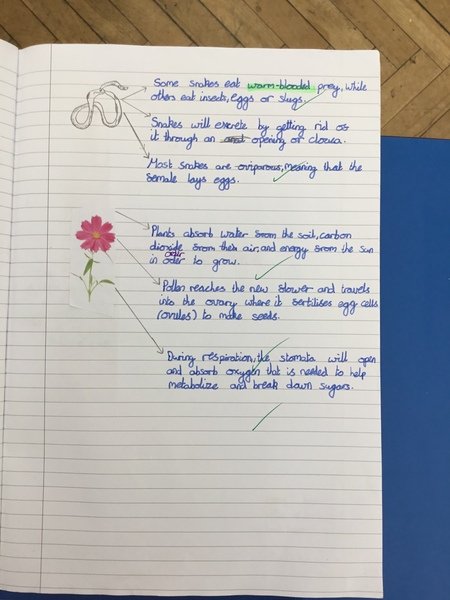 Some snakes eat warm-blooded prey, while
others eat insects, eggs or slugs.
Snakes will excrete by getting rid of
it through an anal opening or cloaca.
Most snakes are oviparous, meaning that the
female lays eggs.
Plants absorb water from the soil, carbon
dioxide from their air, and energy from the sun
order
in oder to grow.
Pollen reaches the new flower and travels
into the ovary where it fertilises egg cells
(ovules) to make seeds.
During respiration, the stomata will open
and absorb oxygen that is needed to help
metabolize and break down sugars.